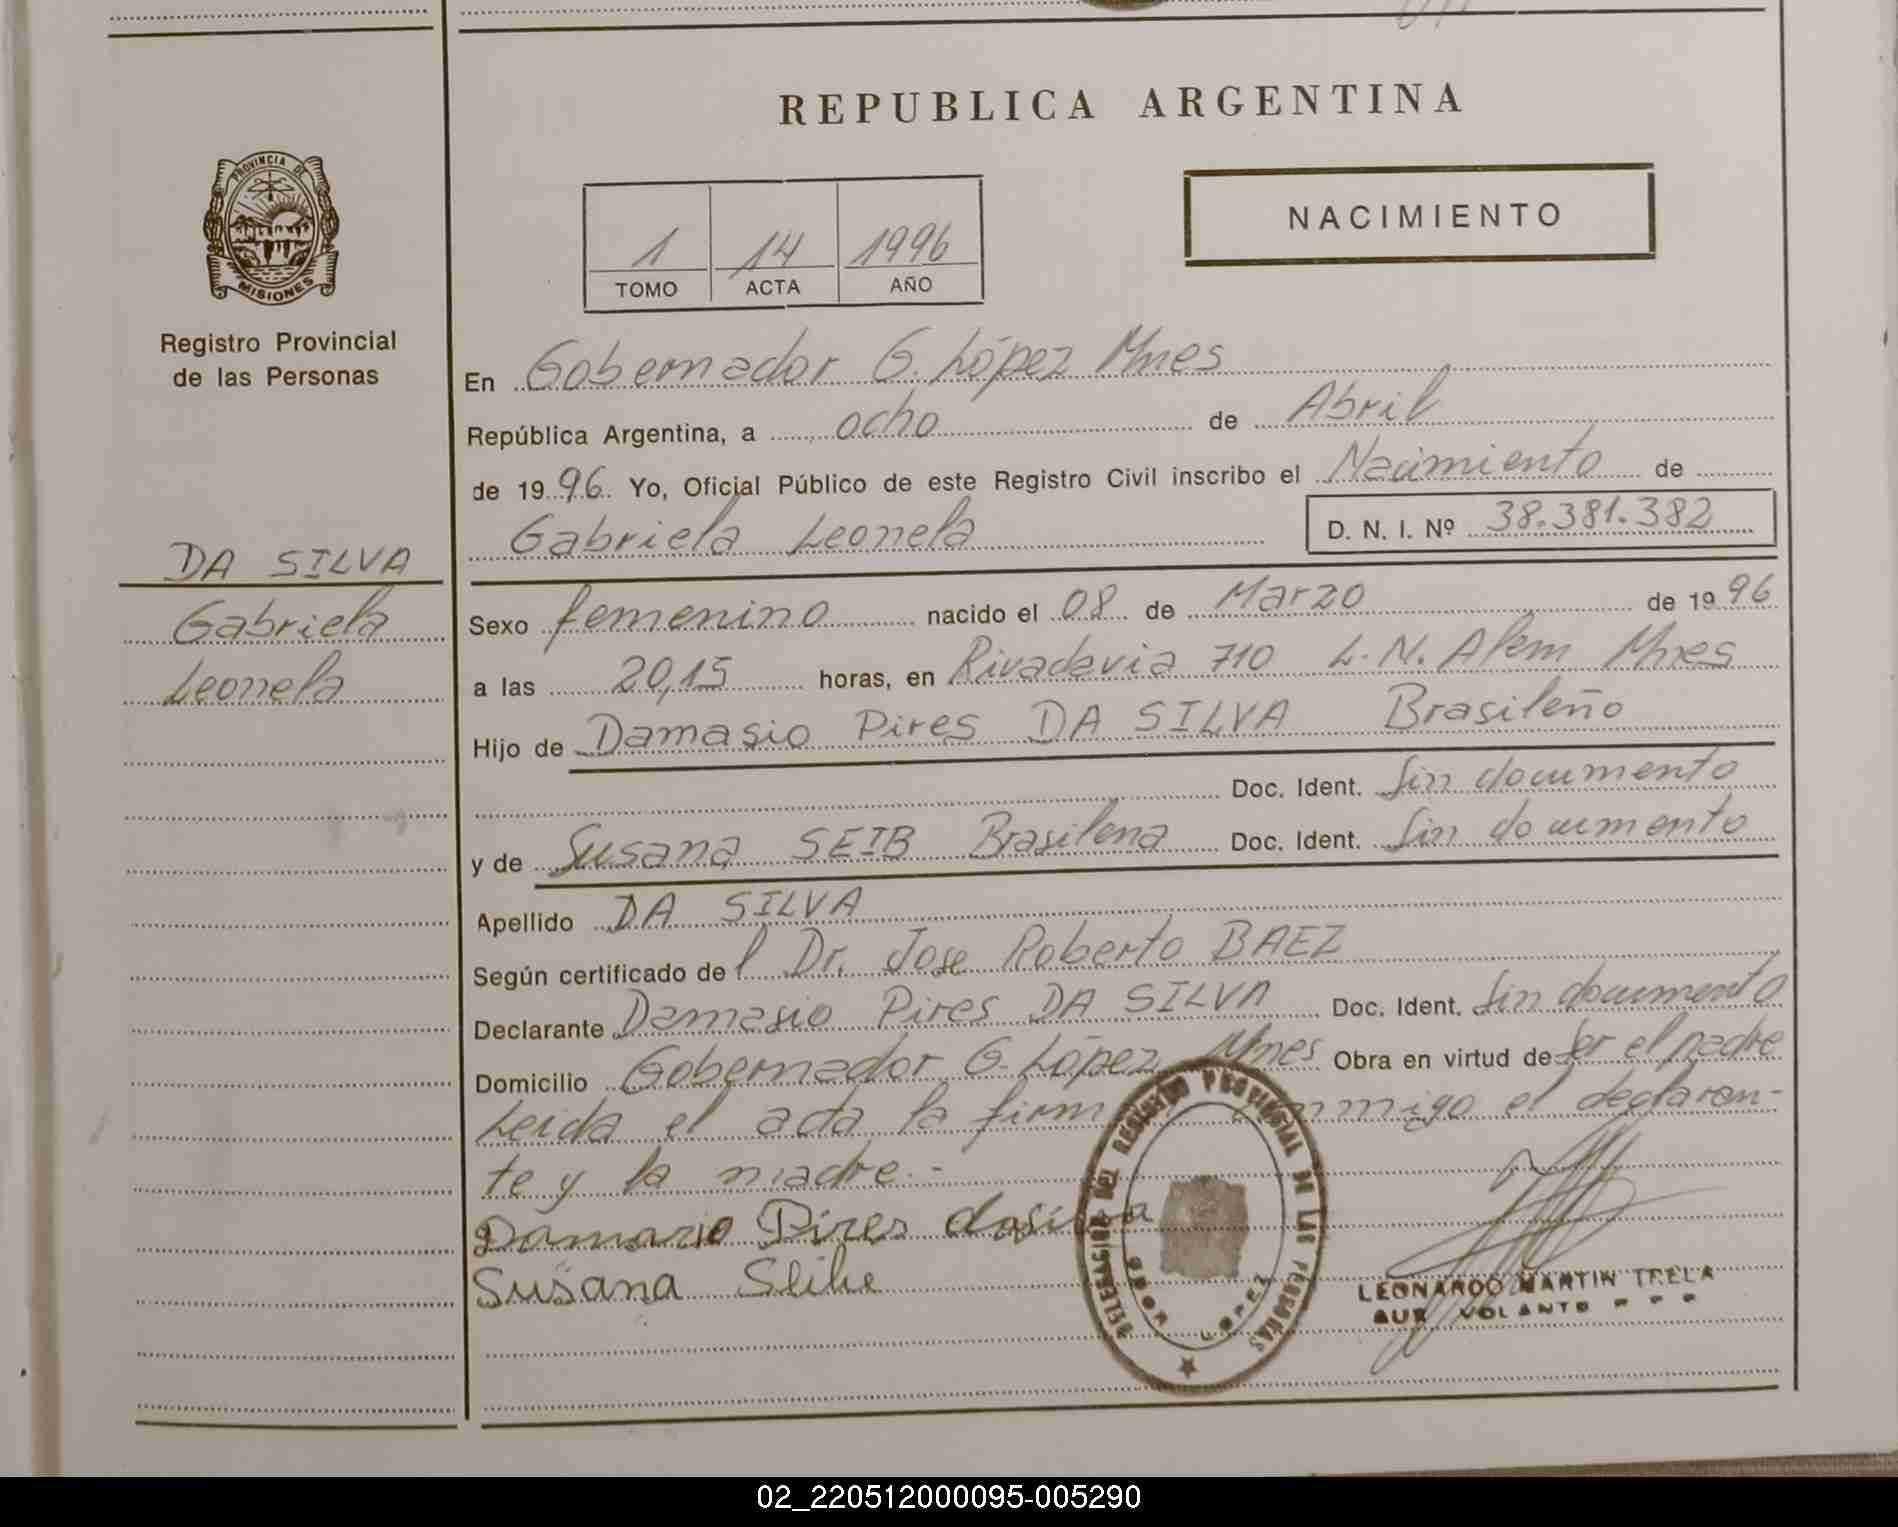 REPUBLICA ARGENTINA
PROVINCIA DE
MISIONES
Registro Provincial
de las Personas
NACIMIENTO
1 14 1996
TOMO ACTA AÑO
En Gobernador G. López Mnes
República Argentina, a ocho de Abril
de 1996. Yo, Oficial Público de este Registro Civil inscribo el Nacimiento de
Gabriela Leonela D. N. I. Nº 38.381.382
DA SILVA
Gabriela
Leonela
Sexo femenino nacido el 08 de Marzo de 1996
a las 20,15 horas, en Rivadavia 710 L. N. Alem Mnes
Hijo de Damasio Pires DA SILVA Brasileño
Doc. Ident. Sin documento
y de Susana SEIB Brasilena Doc. Ident. Sin documento
Apellido DA SILVA
Según certificado del Dr. Jose Roberto BAEZ
Declarante Damasio Pires DA SILVA Doc. Ident. Sin documento
Domicilio Gobernador G. López Mnes Obra en virtud de Ser el padre
Leida el acta la firm conmigo el declaran-
te y la madre.-
Damazio Pires dasilva
Susana
DEL REGISTRO PROVINCIAL DE LAS PERSONAS
GDOR LOPEZ
LEONARDO MARTIN TRELA
AUX VOLANTE
02_220512000095-005290